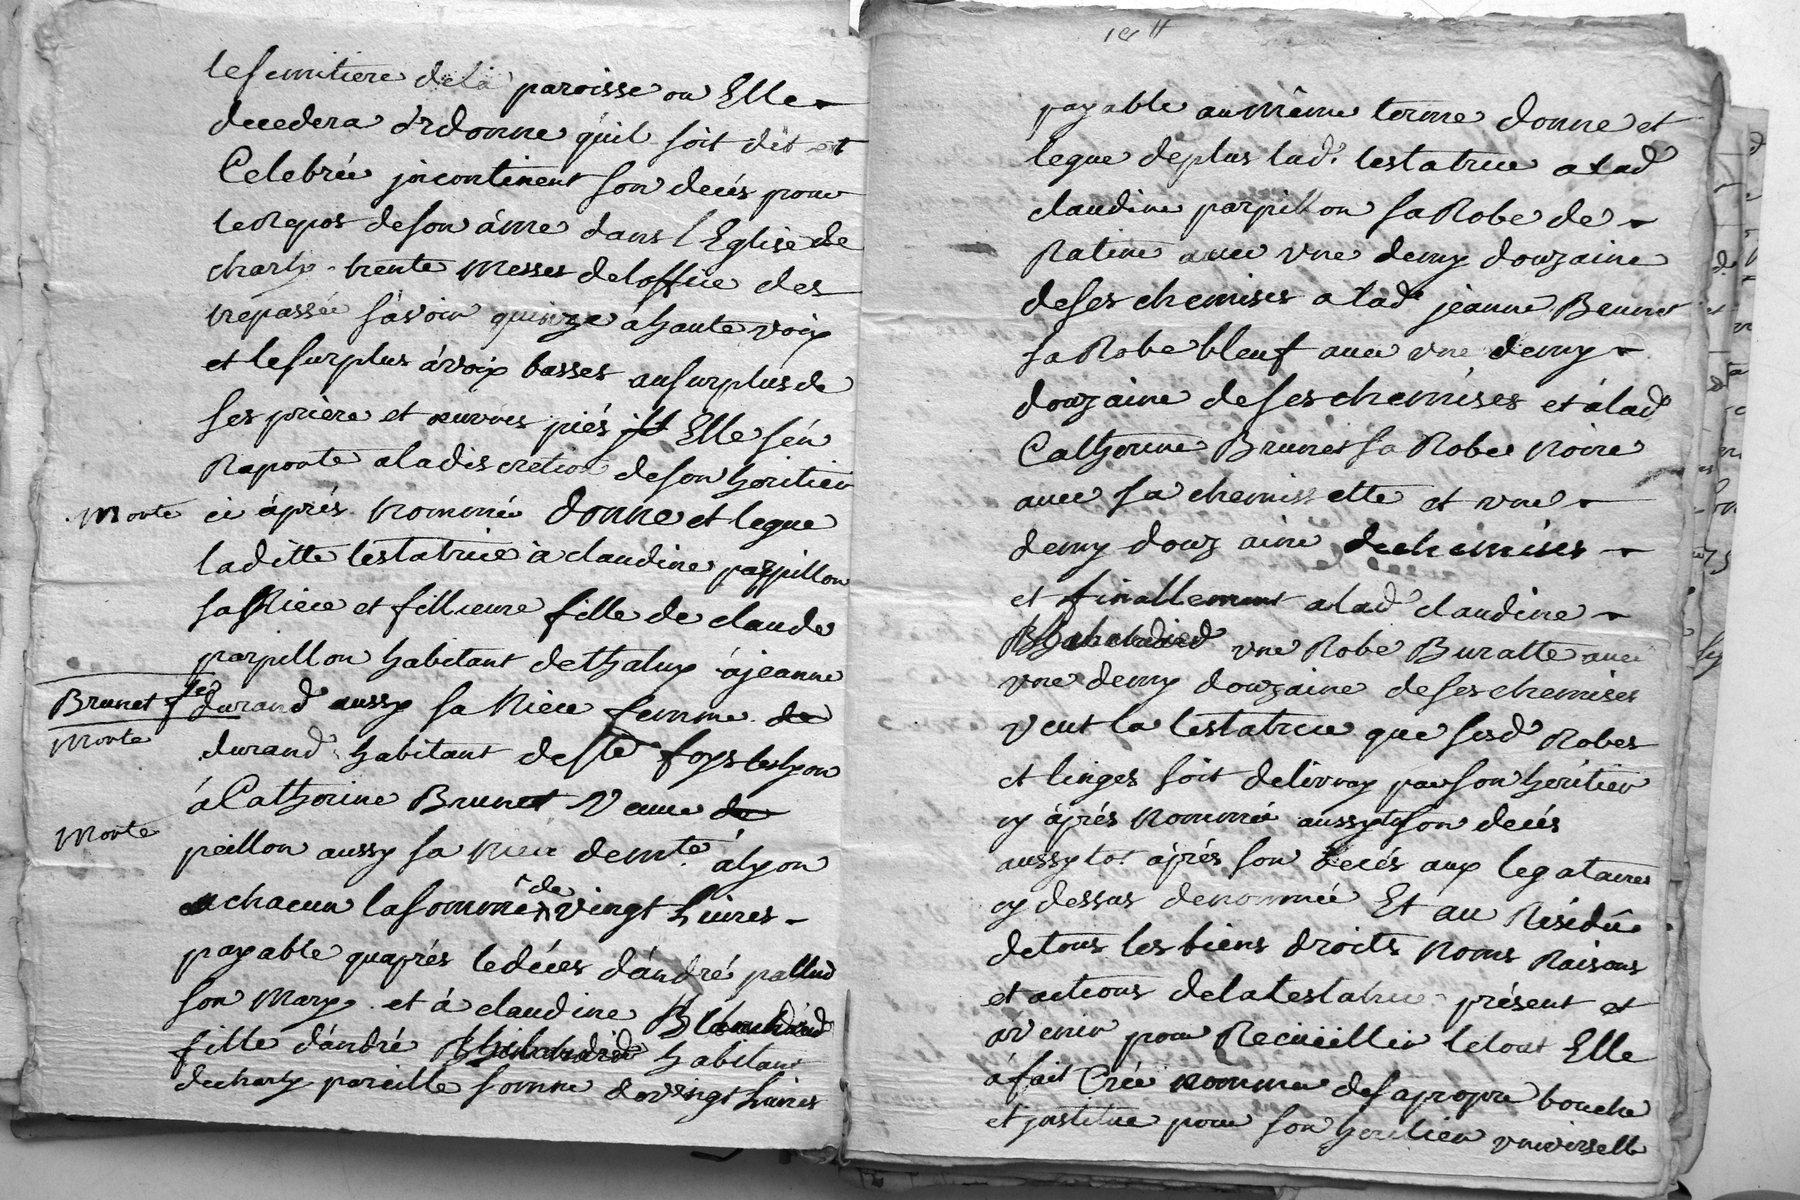 lesemitiere dela paroisse ou Elle
decedera ordonne quil soit dit et
Celebrée jncontinent son decés pour
leRepos deson âme dans lEglise de
charly trente Messes deloffice des
trepassée sávoir quinze áhaute voix
et lesurplus ávoix basses ausurplus de
ses priere et oeuvres piés Elle sén
Raporte aladiscretion deson heritier
Morte
ci áprés nommé donne et legue
laditte testatrice à claudine parpillon
saNiece et fillieure fille de claude
parpillon habitant dethaluy ájeanne
Brunet
Morte
durand aussy sa Niece femme de
durand habitant deste foys leslyon
áCatherine Brunet Veuve de
Morte
peillon aussy sa niéce demte. ályon
a chacun lasomme de vingt Livres
payable quaprés ledéces dándré pallud
son Mary et á claudine
fille dándré habitant
decharly pareille somme devingt Livres
payable aumême terme donne et
legue deplus lad. testatrice alad
claudine parpillon saRobe de
Ratine avec une demy douzaine
deses chemises alade jeanne Brunet
saRobe bleuf avec une demy
douzaine deses chemises et álad
Catherine Brunet sa Robe Noire
avec sa chemissette et une
demy douzaine dechemises
et finallement alad claudine
une Robe Buratte avec
une demy douzaine deses chemises
veut la testatrice que sesd Robes
et linges soit delivray parson heritier
cy áprés nommé aussytot son decés
aussytot áprés son decés aux legataires
cy dessus denommée Et au Résidu
detous les biens droits Noms Raisons
et actions delatestatrice présent et
avenir pour Recueillir letout Elle
áfait Crée nomme desapropre bouche
et jnstitue pour son heritier universelle